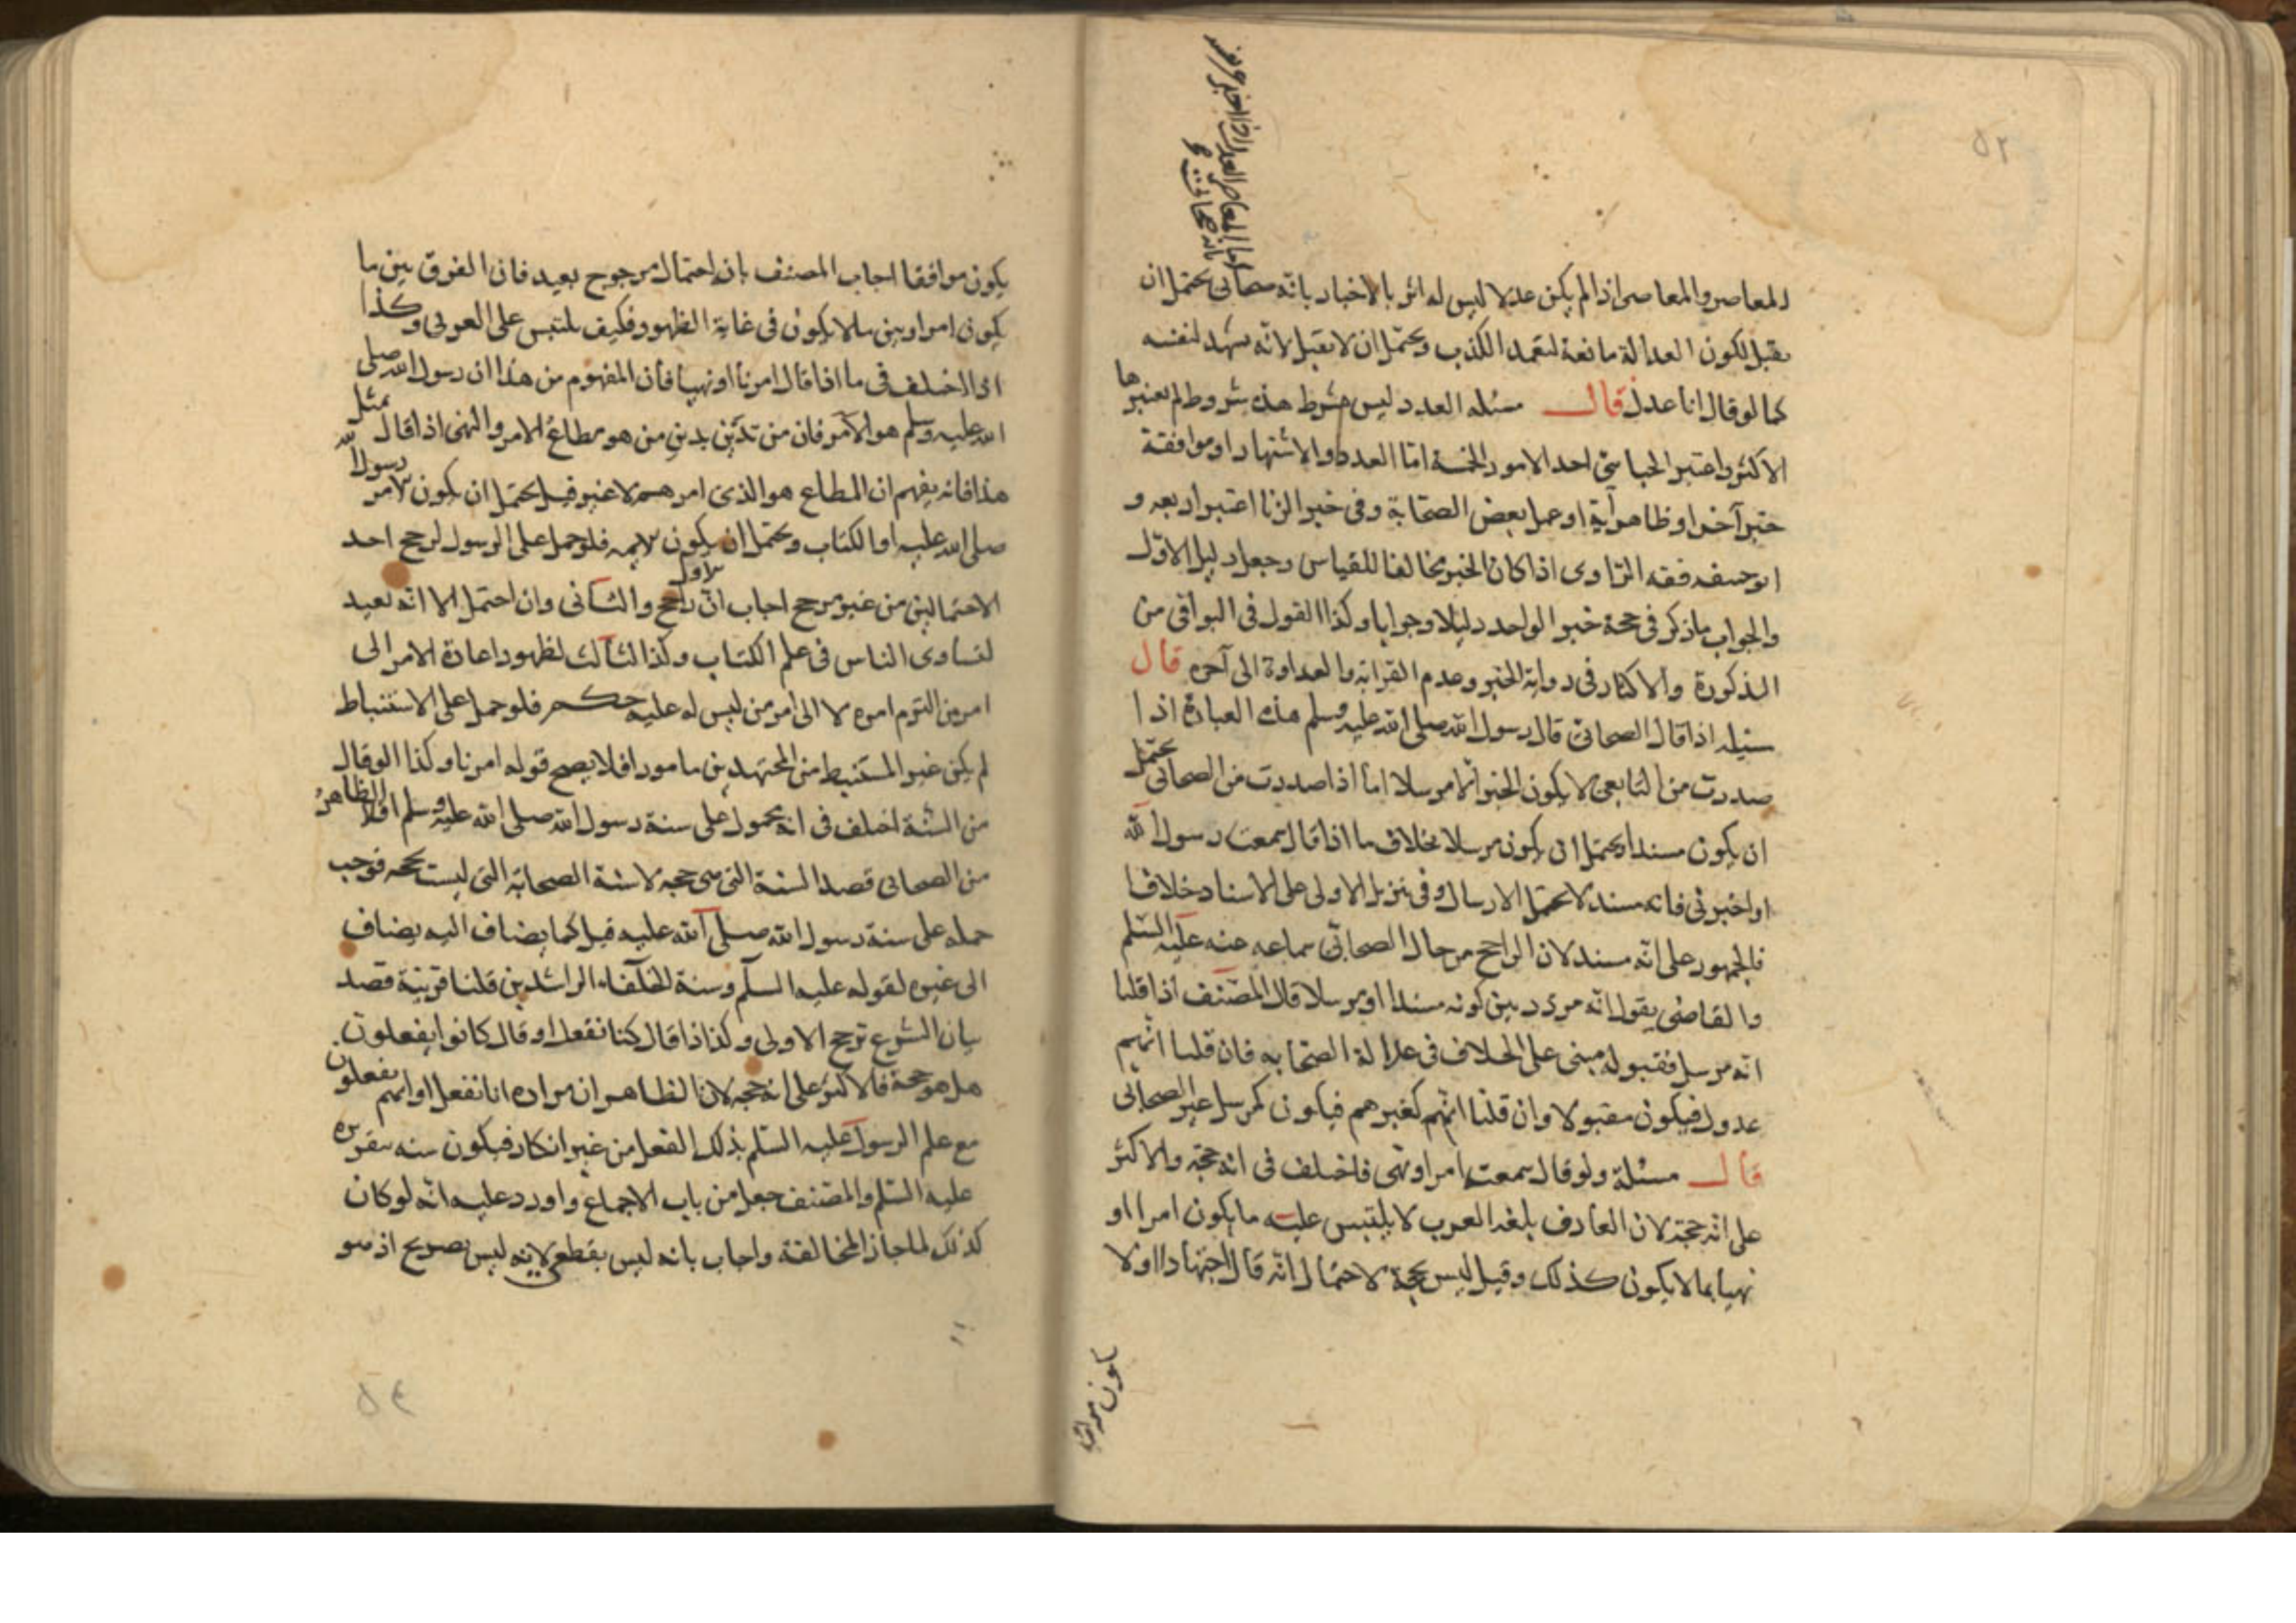 ٥٢
للمعاصر والمعاصى اذا لم يكن عدلا ليس له اثر بالاخبار بانه صحابى يحتمل ان
يقبل لكون العدالة مانعة لتعمد الكذب ويحتمل ان لا يقبل لانه يشهد لنفسه
كما لو قال انا عدل قال مسئله العدد ليس بشرط هذه شروط لم يعتبرها
الاكثر واعتبر الجبائى احد الامور الخمسة اما العدد والاشتهار او موافقة
خبر آخر او ظاهر آية او عمل بعض الصحابة وفى خبر الزنا اعتبر اربعه و
ابو حنيفه فقه الراوى اذا كان الخبر مخالفا للقياس وجعل دليل الاول
والجواب ما ذكر فى حجة خبر الواحد دليلا وجوابا وكذا القول فى البواقى من
الذكورة والاكثار فى رواية الخبر وعدم القرابة والعداوة الى آخره قال
مسئله اذا قال الصحابى قال رسول الله صلى الله عليه وسلم هذه العبارة اذا
صدرت من التابعى لا يكون الخبر الا مرسلا اما اذا صدرت من الصحابى يحتمل
ان يكون مسندا ويحتمل ان يكون مرسلا بخلاف ما اذا قال سمعت رسول الله
او اخبرنى فانه مسند لا يحتمل الارسال وفى تنزيل الاولى على الاسناد خلاف
فالجمهور على انه مسند لان الراجح من حال الصحابى سماعه عنه عليه السلم
والقاضى يقول انه مردد بين كونه مسندا او مرسلا قال المصنف اذا قلنا
انه مرسل فقبوله مبنى على الخلاف فى عدالة الصحابه فان قلنا انهم
عدول فيكون مقبولا وان قلنا انهم كغيرهم فيكون كمرسل غير الصحابى
قال مسئلة ولو قال سمعته امر او نهى فاختلف فى انه حجة والاكثر
على انه حجة لان العارف بلغه العرب لا يلتبس عليه ما يكون امرا او
نهيا بما لا يكون كذلك وقيل ليس بحجة لاحتمال انه قال اجتهادا او لا
يكون موافقا اجاب المصنف بان احتمال مرجوح بعيد فان الفرق بين ما
يكون امرا وبين ما لا يكون فى غاية الظهور فكيف يلتبس على العربى وكذا
اذا اختلف فى ما اذا قال امرنا او نهينا فان المفهوم من هذا ان رسول الله صلى
الله عليه وسلم هو الآمر فان من تدين بدين من هو مطاع الامر والنهى اذا قال مثل
هذا فانه يفهم ان المطاع هو الذى امرهم لا غير قيل يحتمل ان يكون لامر رسول الله
صلى الله عليه او الكتاب ويحتمل ان يكون لايمه فلو حمل على الرسول لرجح احد
الاحتمالين من غير مرجح اجاب ان الاول راجح والثانى وان احتمل الا انه بعيد
لتساوى الناس فى علم الكتاب وكذا الثالث لظهور اعادة الامر الى
امر من التزم امره لا الى امر من ليس له عليه حكم فلو حمل على الاستنباط
لم يكن غير المستنبط من المجتهدين مامورا فلا يصح قوله امرنا وكذا لو قال
من السنة اختلف فى انه محمول على سنة رسول الله صلى الله عليه وسلم او لا الظاهر
من الصحابى قصد السنة التى هى حجه لا سنة الصحابة التى ليست بحجه فوجب
حمله على سنة رسول الله صلى الله عليه قيل كما يضاف اليه يضاف
الى غيره لقوله عليه السلم وسنة الخلفاء الراشدين قلنا قرينة قصد
بيان الشرع ترجح الاولى وكذا اذا قال كنا نفعل او قال كانوا يفعلون
هل هو حجة فالاكثر على انه حجه لان الظاهر ان مراده انا نفعل او انهم يفعلون
مع علم الرسول عليه السلم بذلك الفعل من غير انكار فيكون سنه بتقريره
عليه السلم والمصنف جعل من باب الاجماع واورد عليه انه لو كان
كذلك لما جاز المخالفة واجاب بانه ليس بقطعى لانه ليس بصريح اذ هو